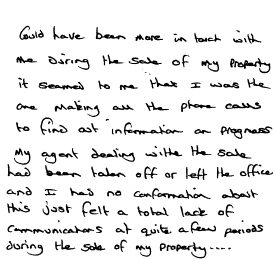 Could have been more in touch with
me During the sale of my Property
it seemed to me that I was the
one making all the phone calls
to find out information on progress
My agent dealing withe the Sale
had been taken off or left the office
and I had no conformation about
this just felt a total lack of
Communications at quite a few periods
during the sale of my property....